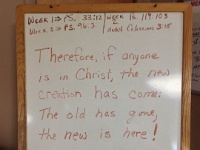 Week 1 → PS. 33:12
Week 16 119:103
Week 2 → PS. 96:3
Colossians 3:15
Therefore, if anyone
is in Christ, the new
creation has come:
The old has gone,
the new is here!